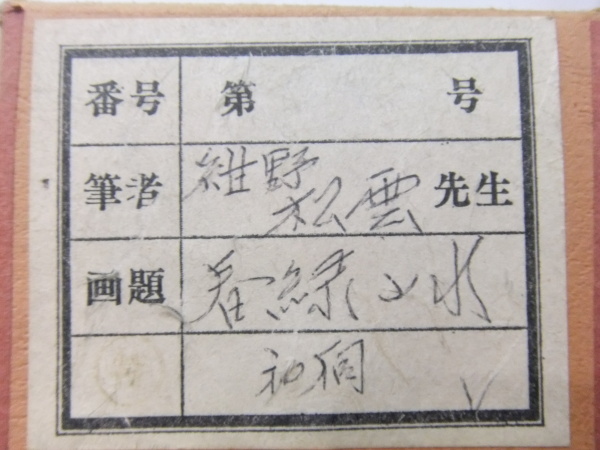 番号 第 号
筆者 雑野松雲 先生
画題 春緑山水